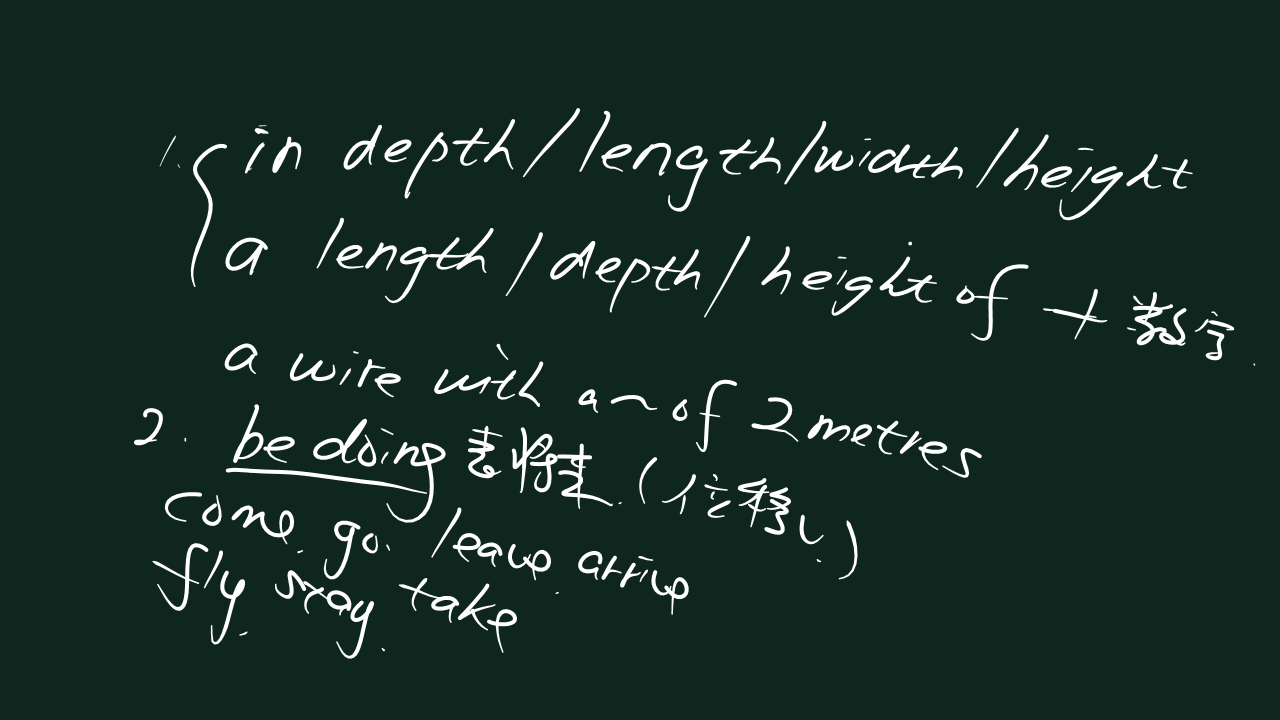 1. in depth/length/width/height
a length/depth/height of + 数字.
a wire with a~of 2 metres
2. be doing 表将来.(位移v.)
come. go. leave. arrive
fly. stay. take